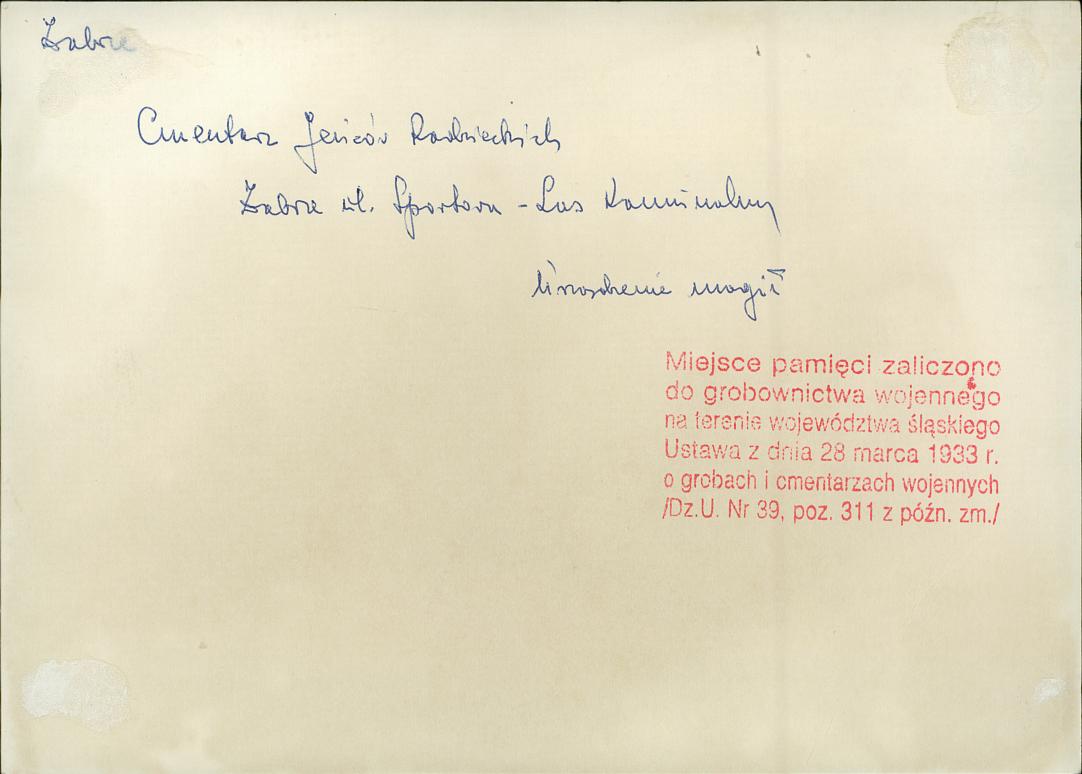 Zabrze
Cmentarz Jeńców Radzieckich
Zabrze ul. Sportowa - Las Komunalny
mogił
Miejsce pamięci zaliczono
do grobownictwa wojennego
na terenie województwa śląskiego
Ustawa z dnia 28 marca 1933 r.
o grobach i cmentarzach wojennych
/Dz.U. Nr 39, poz. 311 z późn. zm./